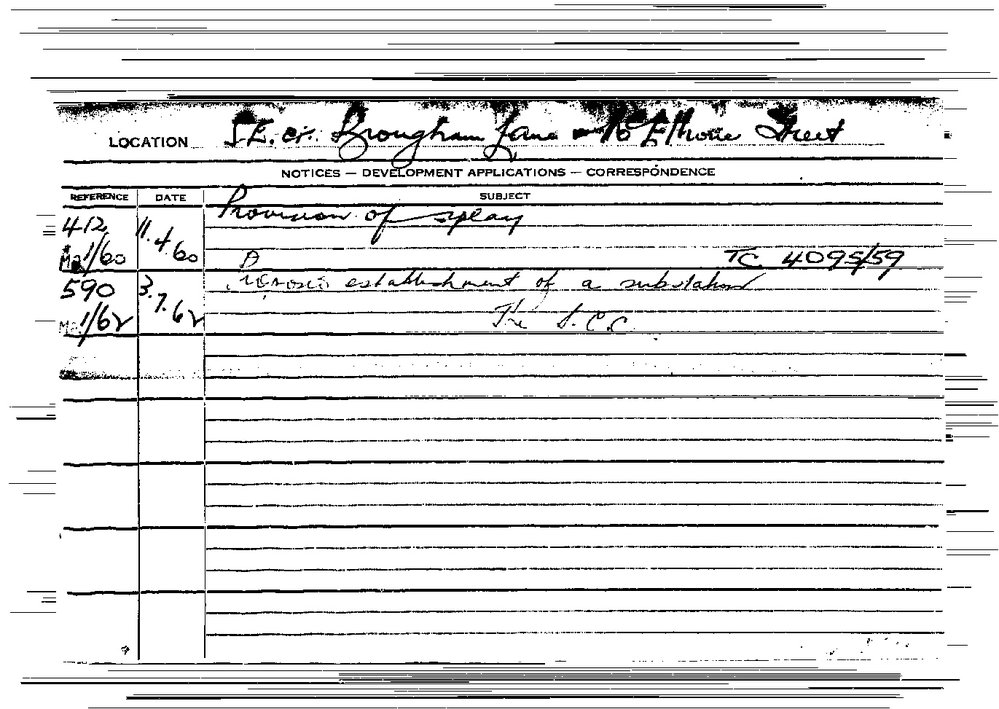 LOCATION S.E. cr. Brougham Lane & McElhone Street
NOTICES — DEVELOPMENT APPLICATIONS — CORRESPONDENCE
REFERENCE DATE SUBJECT
412 11.4.60 Provision of splay
Ma1/60 TC 4095/59
590 3.7.62 establishment of a substation
Ma1/62 The S.C.C.